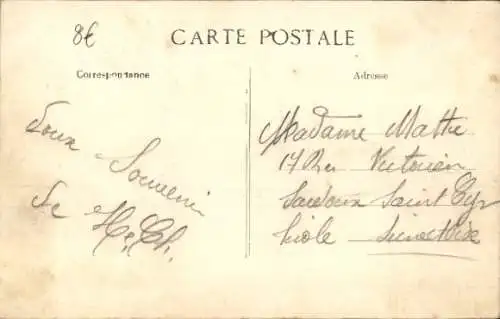 8€
CARTE POSTALE
Correspondance
Adresse
Doux
Souvenir
de H. Ch.
Madame Mathe
17 Rue Victorien
Sardoux Saint Cyr
l'école Seine et Oise